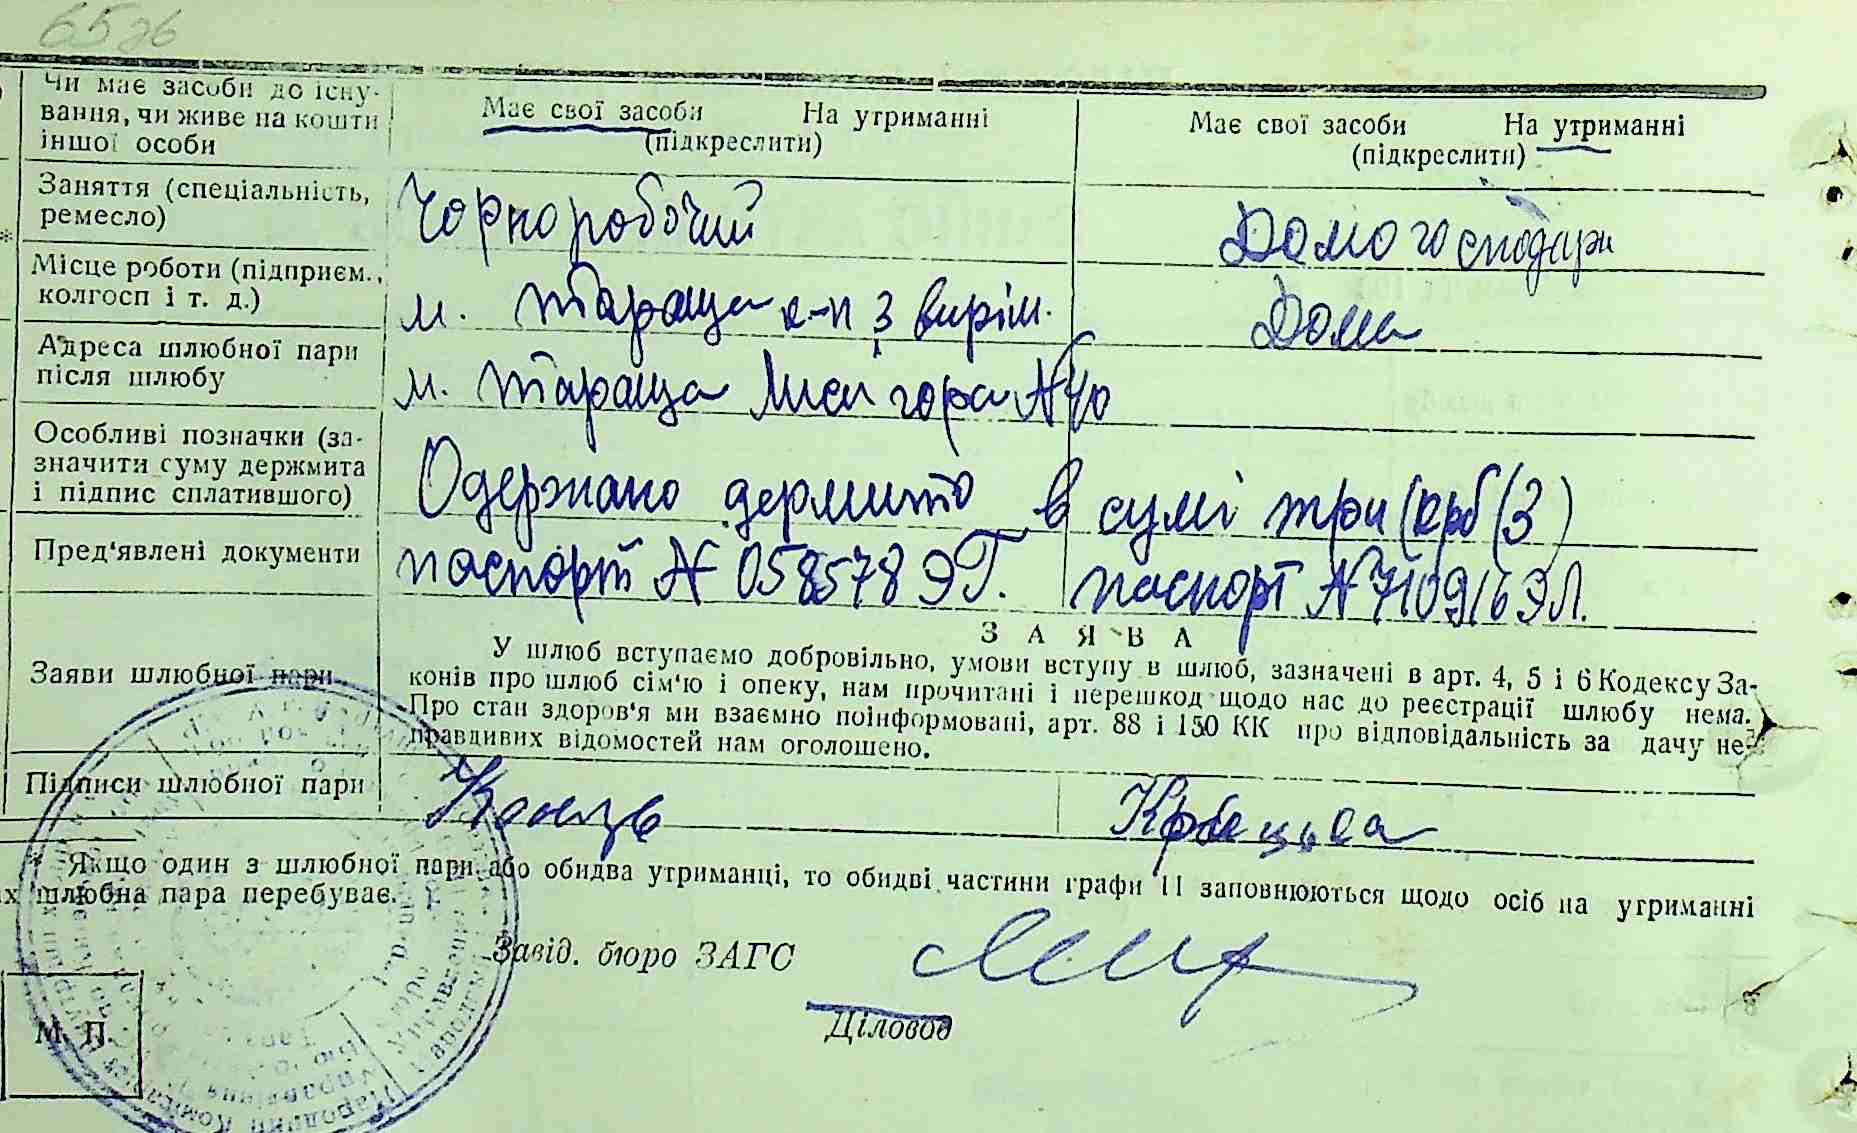 6526
Чи має засоби до існу-
вання, чи живе на кошти
іншої особи
Має свої засоби На утриманні
(підкреслити)
Має свої засоби На утриманні
(підкреслити)
Заняття (спеціальність,
ремесло)
Чорноробочий
Домогосподарк
Місце роботи (підприєм.,
колгосп і т. д.)
м. Тараща к-п 3 виріш.
Дома
Адреса шлюбної пари
після шлюбу
м. Тараща Лиса гора № 40
Особливі позначки (за-
значити суму держмита
і підпис сплатившого)
Одержано держмито в сумі три (крб (3)
Пред'явлені документи
паспорт № 058578 ЭГ.
паспорт № 710916 ЭЛ.
ЗАЯВА
Заяви шлюбної пари
У шлюб вступаємо добровільно, умови вступу в шлюб, зазначені в арт. 4, 5 і 6 Кодексу За-
конів про шлюб сім'ю і опеку, нам прочитані і перешкод щодо нас до реєстрації шлюбу нема.
Про стан здоров'я ми взаємно поінформовані, арт. 88 і 150 КК про відповідальність за дачу не-
правдивих відомостей нам оголошено.
Підписи шлюбної пари
* Якщо один з шлюбної пари або обидва утриманці, то обидві частини графи 11 заповнюються щодо осіб на утриманні
х шлюбна пара перебуває.
Завід. бюро ЗАГС
Діловод
М. П.